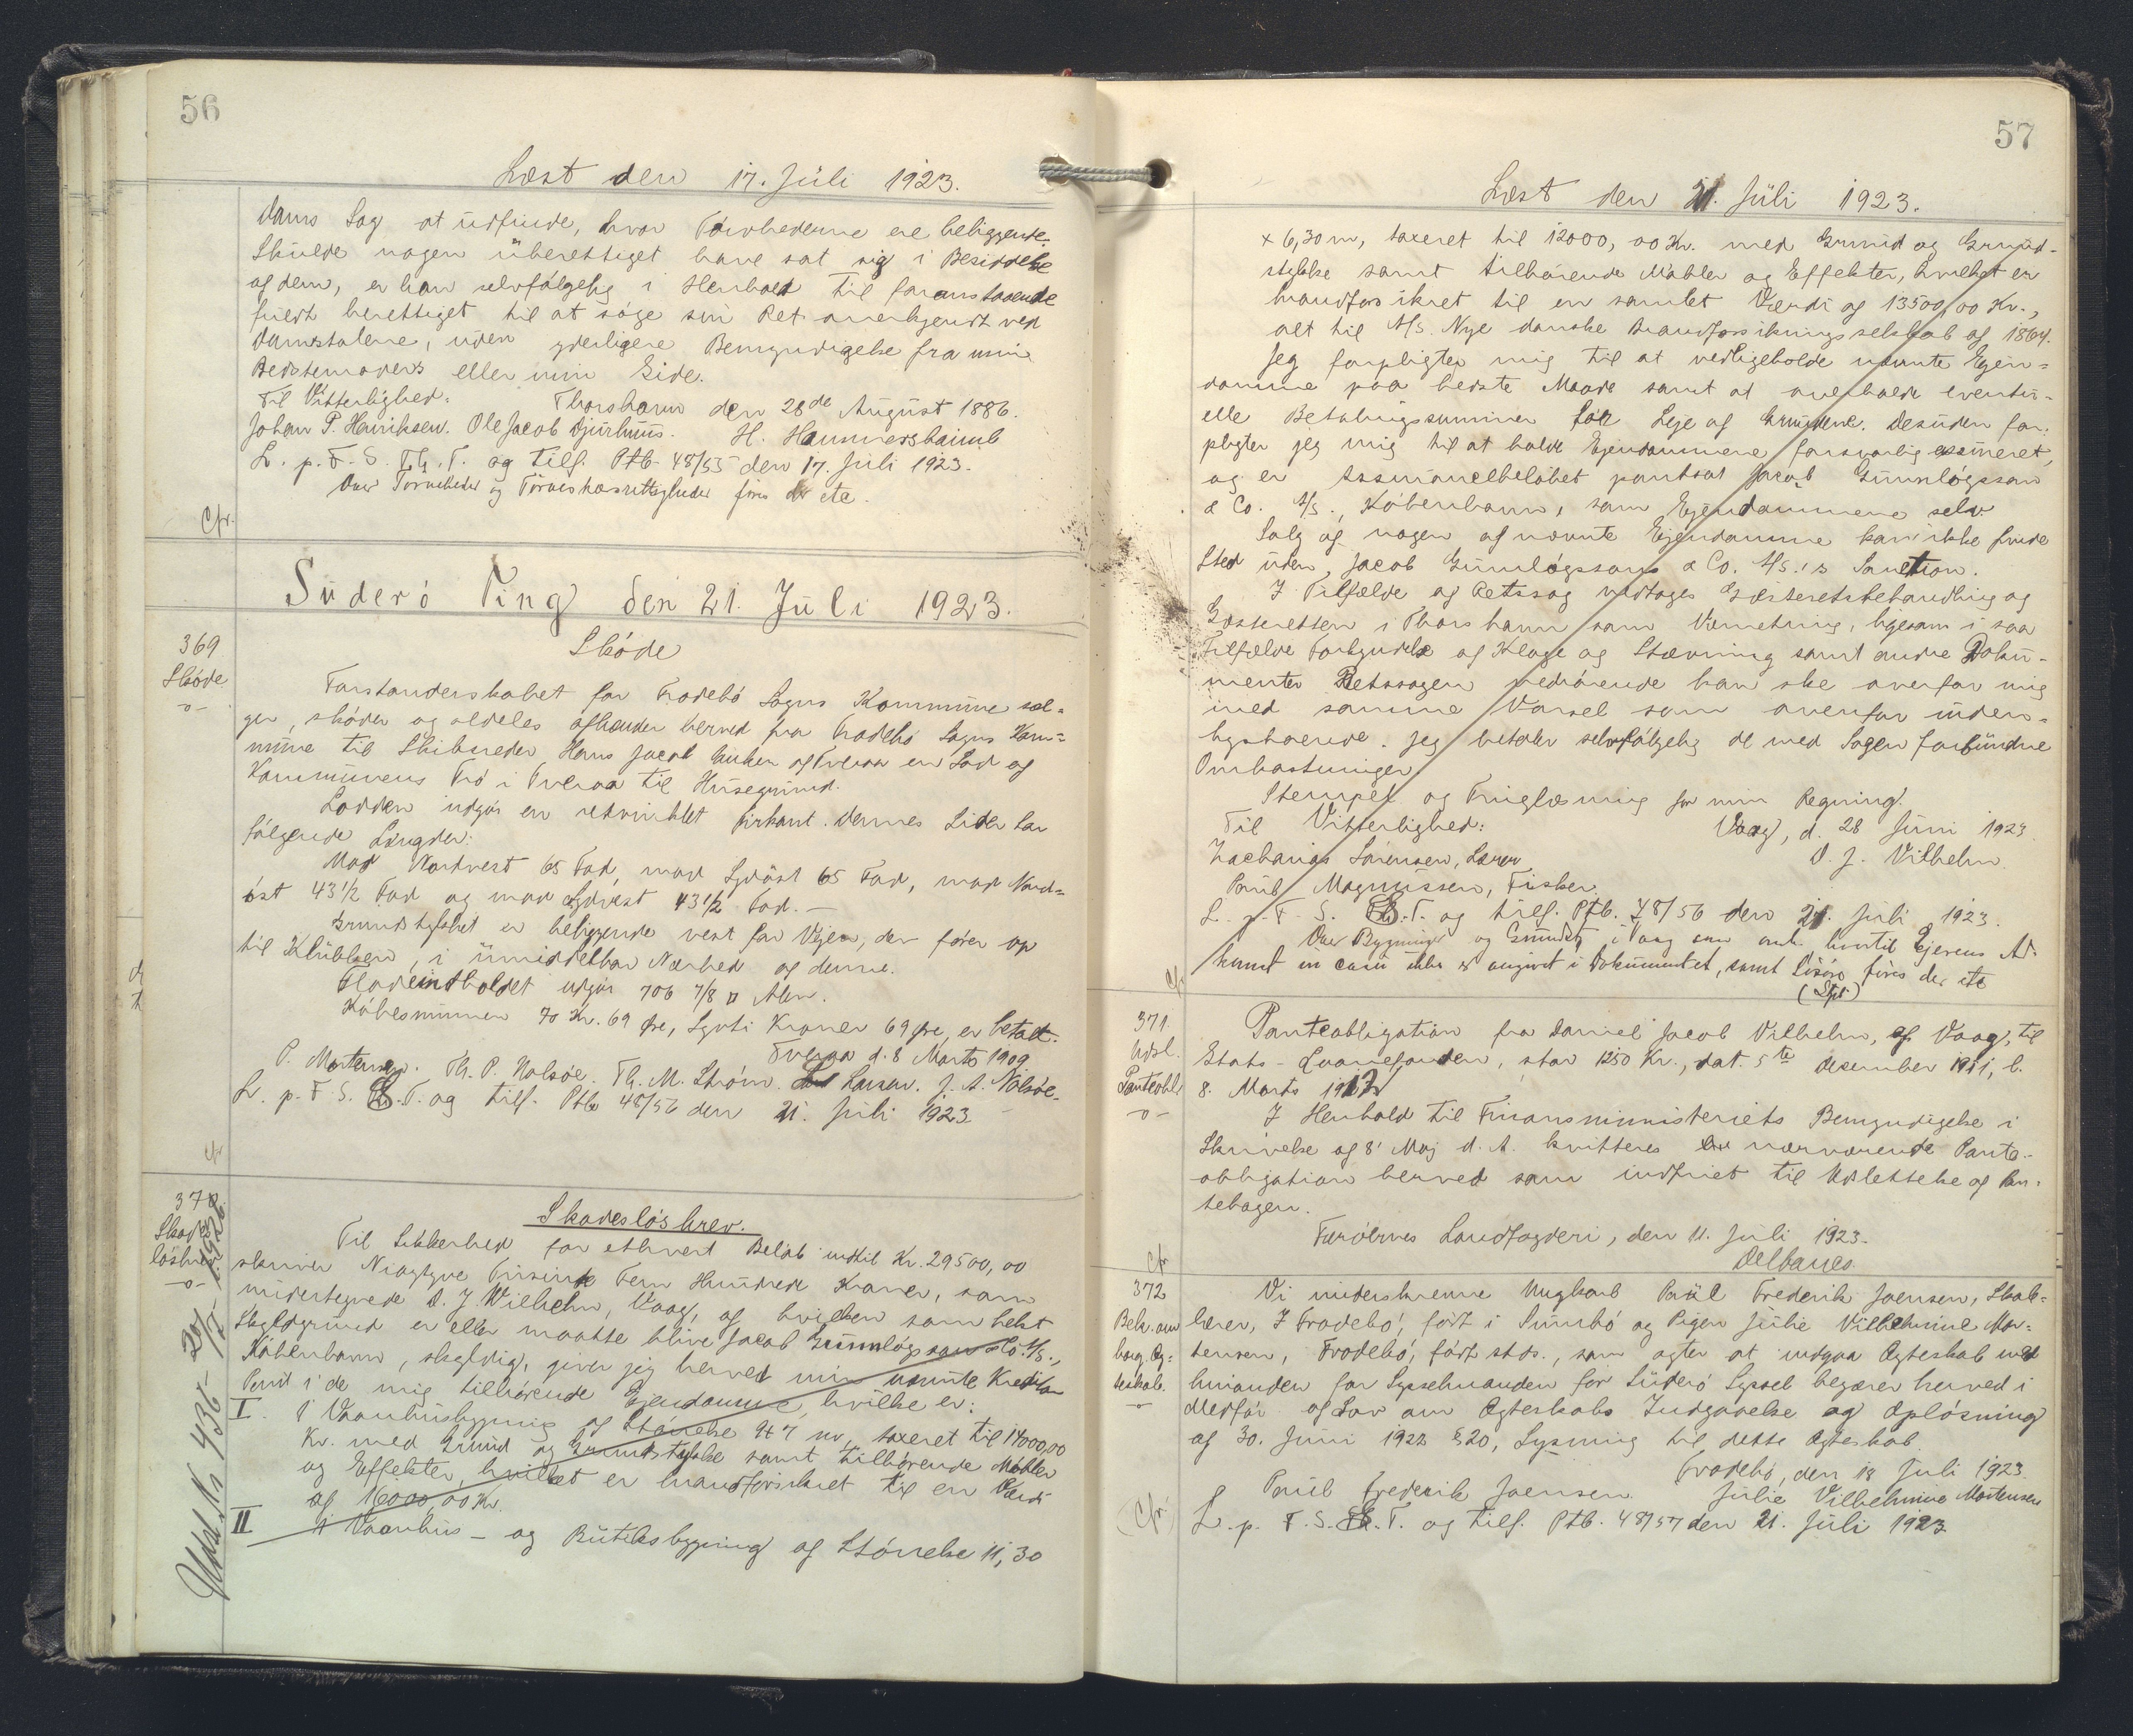 56
Læst den 17. Juli 1923.
dans Sag at udfinde, hvor Tørvhederne ere beliggende.
Skulde nogen uberettiget have sat sig i Besiddelse
af dem, er han selvfølgelig i Henhold til foranstaaende
fuldt berettiget til at søge sin Ret anerkjendt ved
Domstolene, uden yderligere Bemyndigelse fra min
Bedstemoders eller min Side.
Til Vitterlighed: Thorshavn den 28de August 1886.
Johan P. Henriksen. Ole Jacob Djurhuus. H. Hammershaimb
L. p. F. S. Th. T. og tilf. Ptb. 48/55 den 17. Juli 1923.
Over Tørveheder og føres der ete.
Cfr.
Suderø Ting den 21. Juli 1923.
369
Skøde
-o-
Skøde
Forstanderskabet for Frodebø Sogns Kommune sæl=
ger, skøder og aldeles afhænder herved fra Frodebø Sogns Kom=
mune til Skibsreder Hans Jacob af Tveraa en Lod af
Kommunens Trø i Tveraa til Husegrund.
Lodden udgør en retvinklet Firkant. Dennes Sider har
følgende Længder:
Mod Nordvest 65 Fod, mod Sydøst 65 Fod, mod Nord=
øst 43 1/2 Fod og mod Sydvest 43 1/2 Fod. —
Grundstykket er beliggende vest for Vejen, der fører op
til Klubben, i umiddelbar Nærhed af denne.
Fladeindholdet udgør 706 7/8 □ Alen.
Købesummen 70 Kr. 69 Øre, Syvti Kroner 69 Øre, er betalt.
Tveraa d. 8 Marts 1909
P. Mortensen. Th. P. Nolsøe. Th. M. Strøm. Larsen. J. A. Nolsøe.
L. p. F. S. T. og tilf. Ptb 48/56 den 21. Juli 1923
Cfr
370
Skades
løsbrev
-o-
Udsl. Nr 436 - 20/ - 1926.
Skadesløsbrev.
Til Sikkerhed for ethvert Beløb indtil Kr. 29500,00
skriver Niogtyve Tusinde Fem Hundrede Kroner, som
undertegnede D. J. Vilhelm, Vaag, af hvilken som helst
Skyldgrund er eller maatte blive Jacob Gunnløgsson & Co. A/S.,
København, skyldig, giver jeg herved min nævnte Kreditor
Pant i de mig tilhørende Ejendomme, hvilke er:
I. 1 Vaanhusbygning af Størrelse 9 x 7 m, taxeret til 14000,00
Kr. med Grund og Grundstykke samt tilhørende Møbler
og Effekter, hvilket er brandforsikret til en Værdi
af 16000,00 Kr.
II 1 Vaanhus- og Butiksbygning af Størrelse 11,30
57
Læst den 21. Juli 1923.
x 6,30 m, taxeret til 12000,00 Kr. med Grund og Grund-
stykke samt tilhørende Møbler og Effekter, hvilket er
brandforsikret til en samlet Værdi af 13500,00 Kr.,
alt til A/S. Nye danske Brandforsikringsselskab af 1864.
Jeg forpligter mig til at vedligeholde nævnte Ejen=
domme paa bedste Maade samt at overholde eventu-
elle Betalingssummer for Leje af Grundene. Desuden for-
pligter jeg mig til at holde Ejendommene forsvarlig assureret,
og er Assurancebeløbet pantsat Jacob Gunnløgsson
& Co. A/S., København, som Ejendommene selv.
Salg af nogen af nævnte Ejendomme kan ikke finde
Sted uden Jacob Gunnløgssons & Co. A/S.'s Sanction.
I Tilfælde af Retssag vedtages Gæsteretsbehandling og
Gæsteretten i Thorshavn som Værneting, ligesom i saa
Tilfælde Forkyndelse af Klage og Stævning samt andre Doku-
menter Retssagen vedrørende kan ske overfor mig
med samme Varsel som overfor inden-
bysboende. Jeg betaler selvfølgelig de med Sagen forbundne
Omkostninger.
Stempel og Tinglæsning for min Regning.
Til Vitterlighed: Vaag, d. 28 Juni 1923
Zacharias Sørensen, Lærer D. J. Vilhelm
Poul Magnussen, Fisker
L. p. F. S. T. og tilf. Ptb. 48/56 den 21. Juli 1923.
Over Bygninger og Grundst. i Vaag som anf. hvortil Ejerens Ad-
komst in casu ikke er angivet i Dokumentet, samt føres der ete
(Stpl)
Cfr
371
Udsl.
Panteobl.
-o-
Panteobligation fra Daniel Jacob Vilhelm, af Vaag, til
Stats-Laanefonden, stor 1250 Kr., dat. 5te Desember 1911, l.
8. Marts 1912
I Henhold til Finansministeriets Bemyndigelse i
Skrivelse af 8' Maj d. A. kvitteres nærværende Pante-
obligation herved som indfriet til Udslettelse af Pan-
tebogen.
Færøernes Landfogderi, den 11. Juli 1923.
Delbanco.
Cfr
372
Bek. om
borg. Æg=
teskab.
-o-
Vi underskrevne Ungkarl Poul Frederik Joensen, Skole-
lærer, I Frodebø, født i Sumbø og Pigen Julie Vilhelmine Mor-
tensen, Frodebø, født stds., som agter at indgaa Ægteskab med
hinanden for Sysselmanden for Suderø Syssel begærer herved i
Medfør af Lov om Ægteskabs Indgaaelse og Opløsning
af 30. Juni 1922 § 20, Lysning til dette Ægteskab.
Frodebø, den 18 Juli 1923.
Poul Frederik Joensen Julie Vilhelmine Mortensen
L. p. F. S. T. og tilf. Ptb. 48/57 den 21. Juli 1923
(Cfr.)